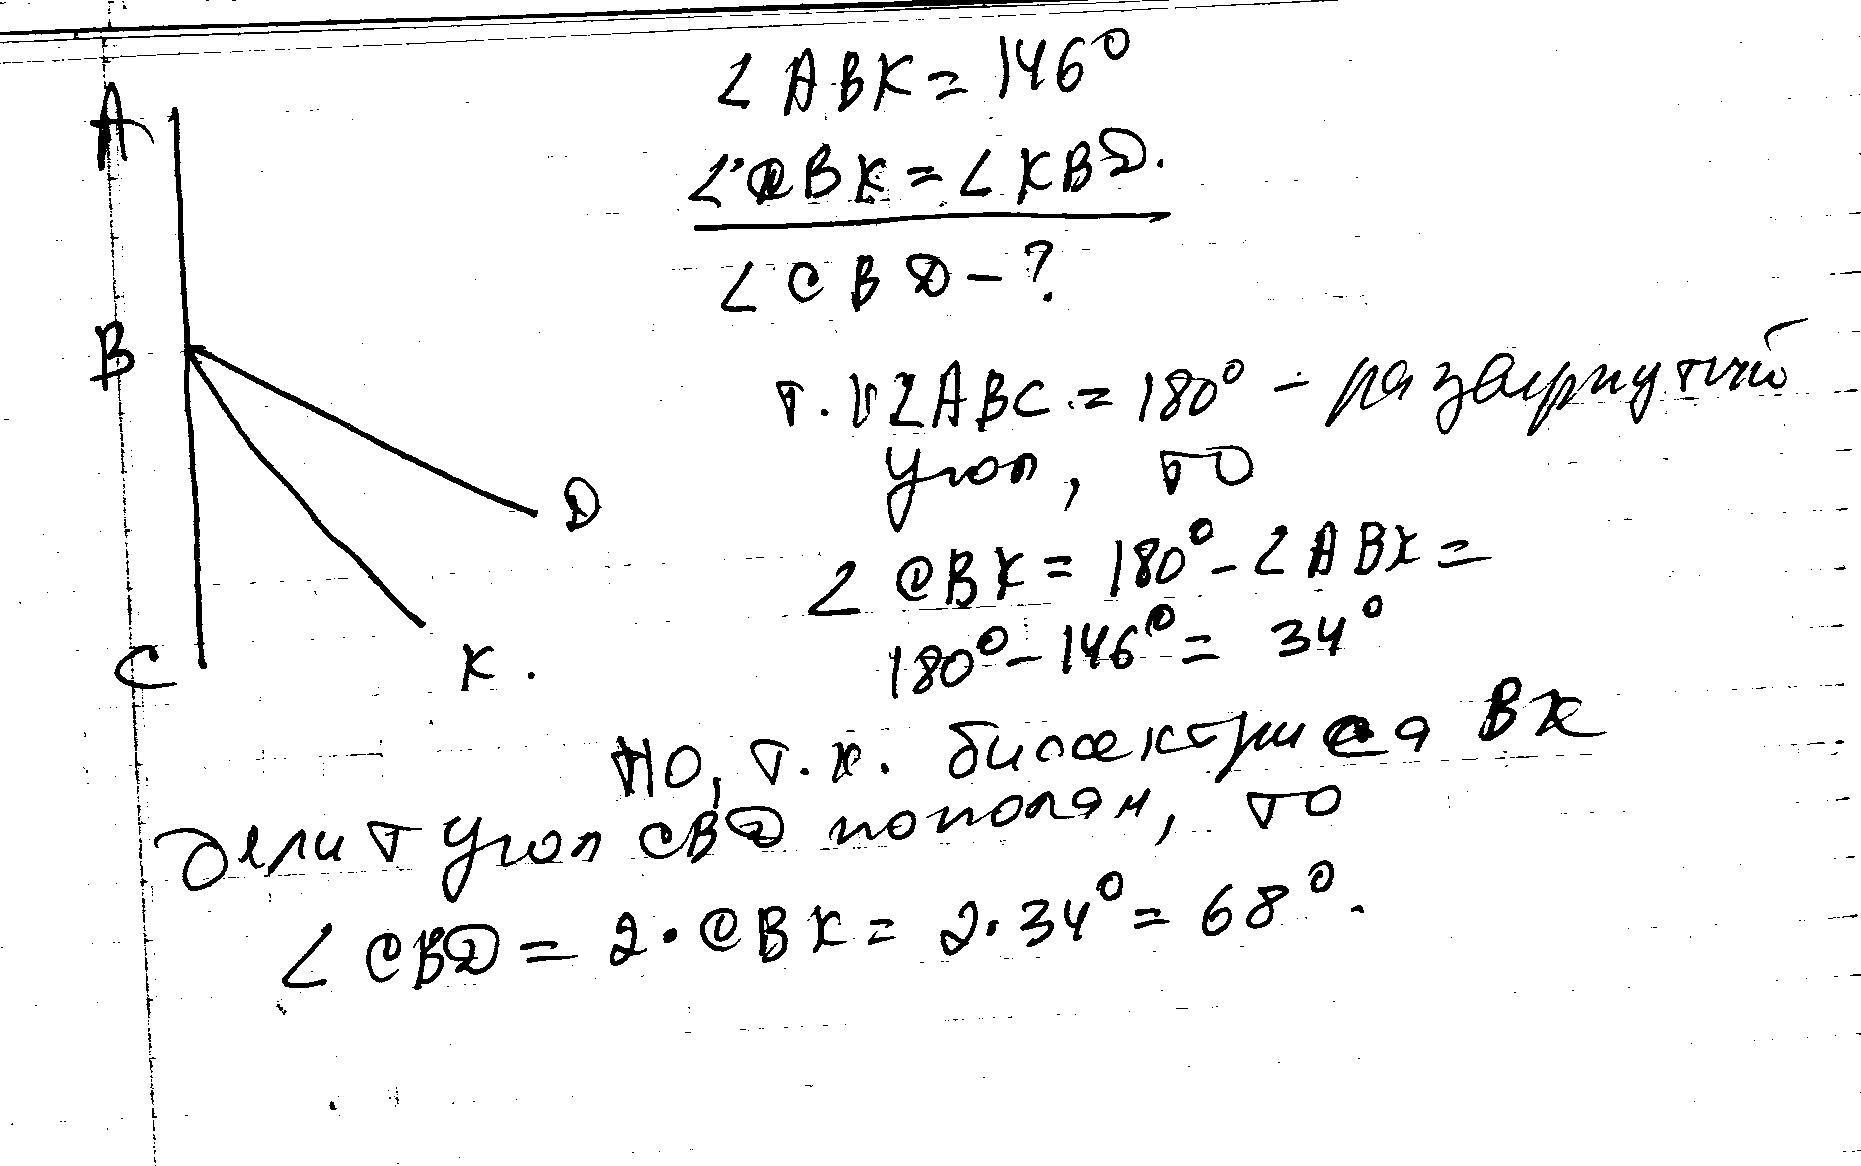 ∠ABK = 146°
A
∠CBK = ∠KBD.
∠CBD - ?
B
т.к ∠ABC = 180° - развернутый
угол, то
D
∠CBK = 180° - ∠ABK =
180° - 146° = 34°
C
K.
но, т.к. биссектриса BK
делит угол CBD пополам, то
∠CBD = 2·CBK = 2·34° = 68°.